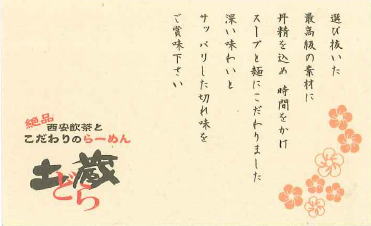 選び抜いた
最高級の素材に
丹精を込め 時間をかけ
スープと麺にこだわりました
深い味わいと
サッパリした切れ味を
ご賞味下さい
絶品
西安飲茶と
こだわりのらーめん
土蔵
どら